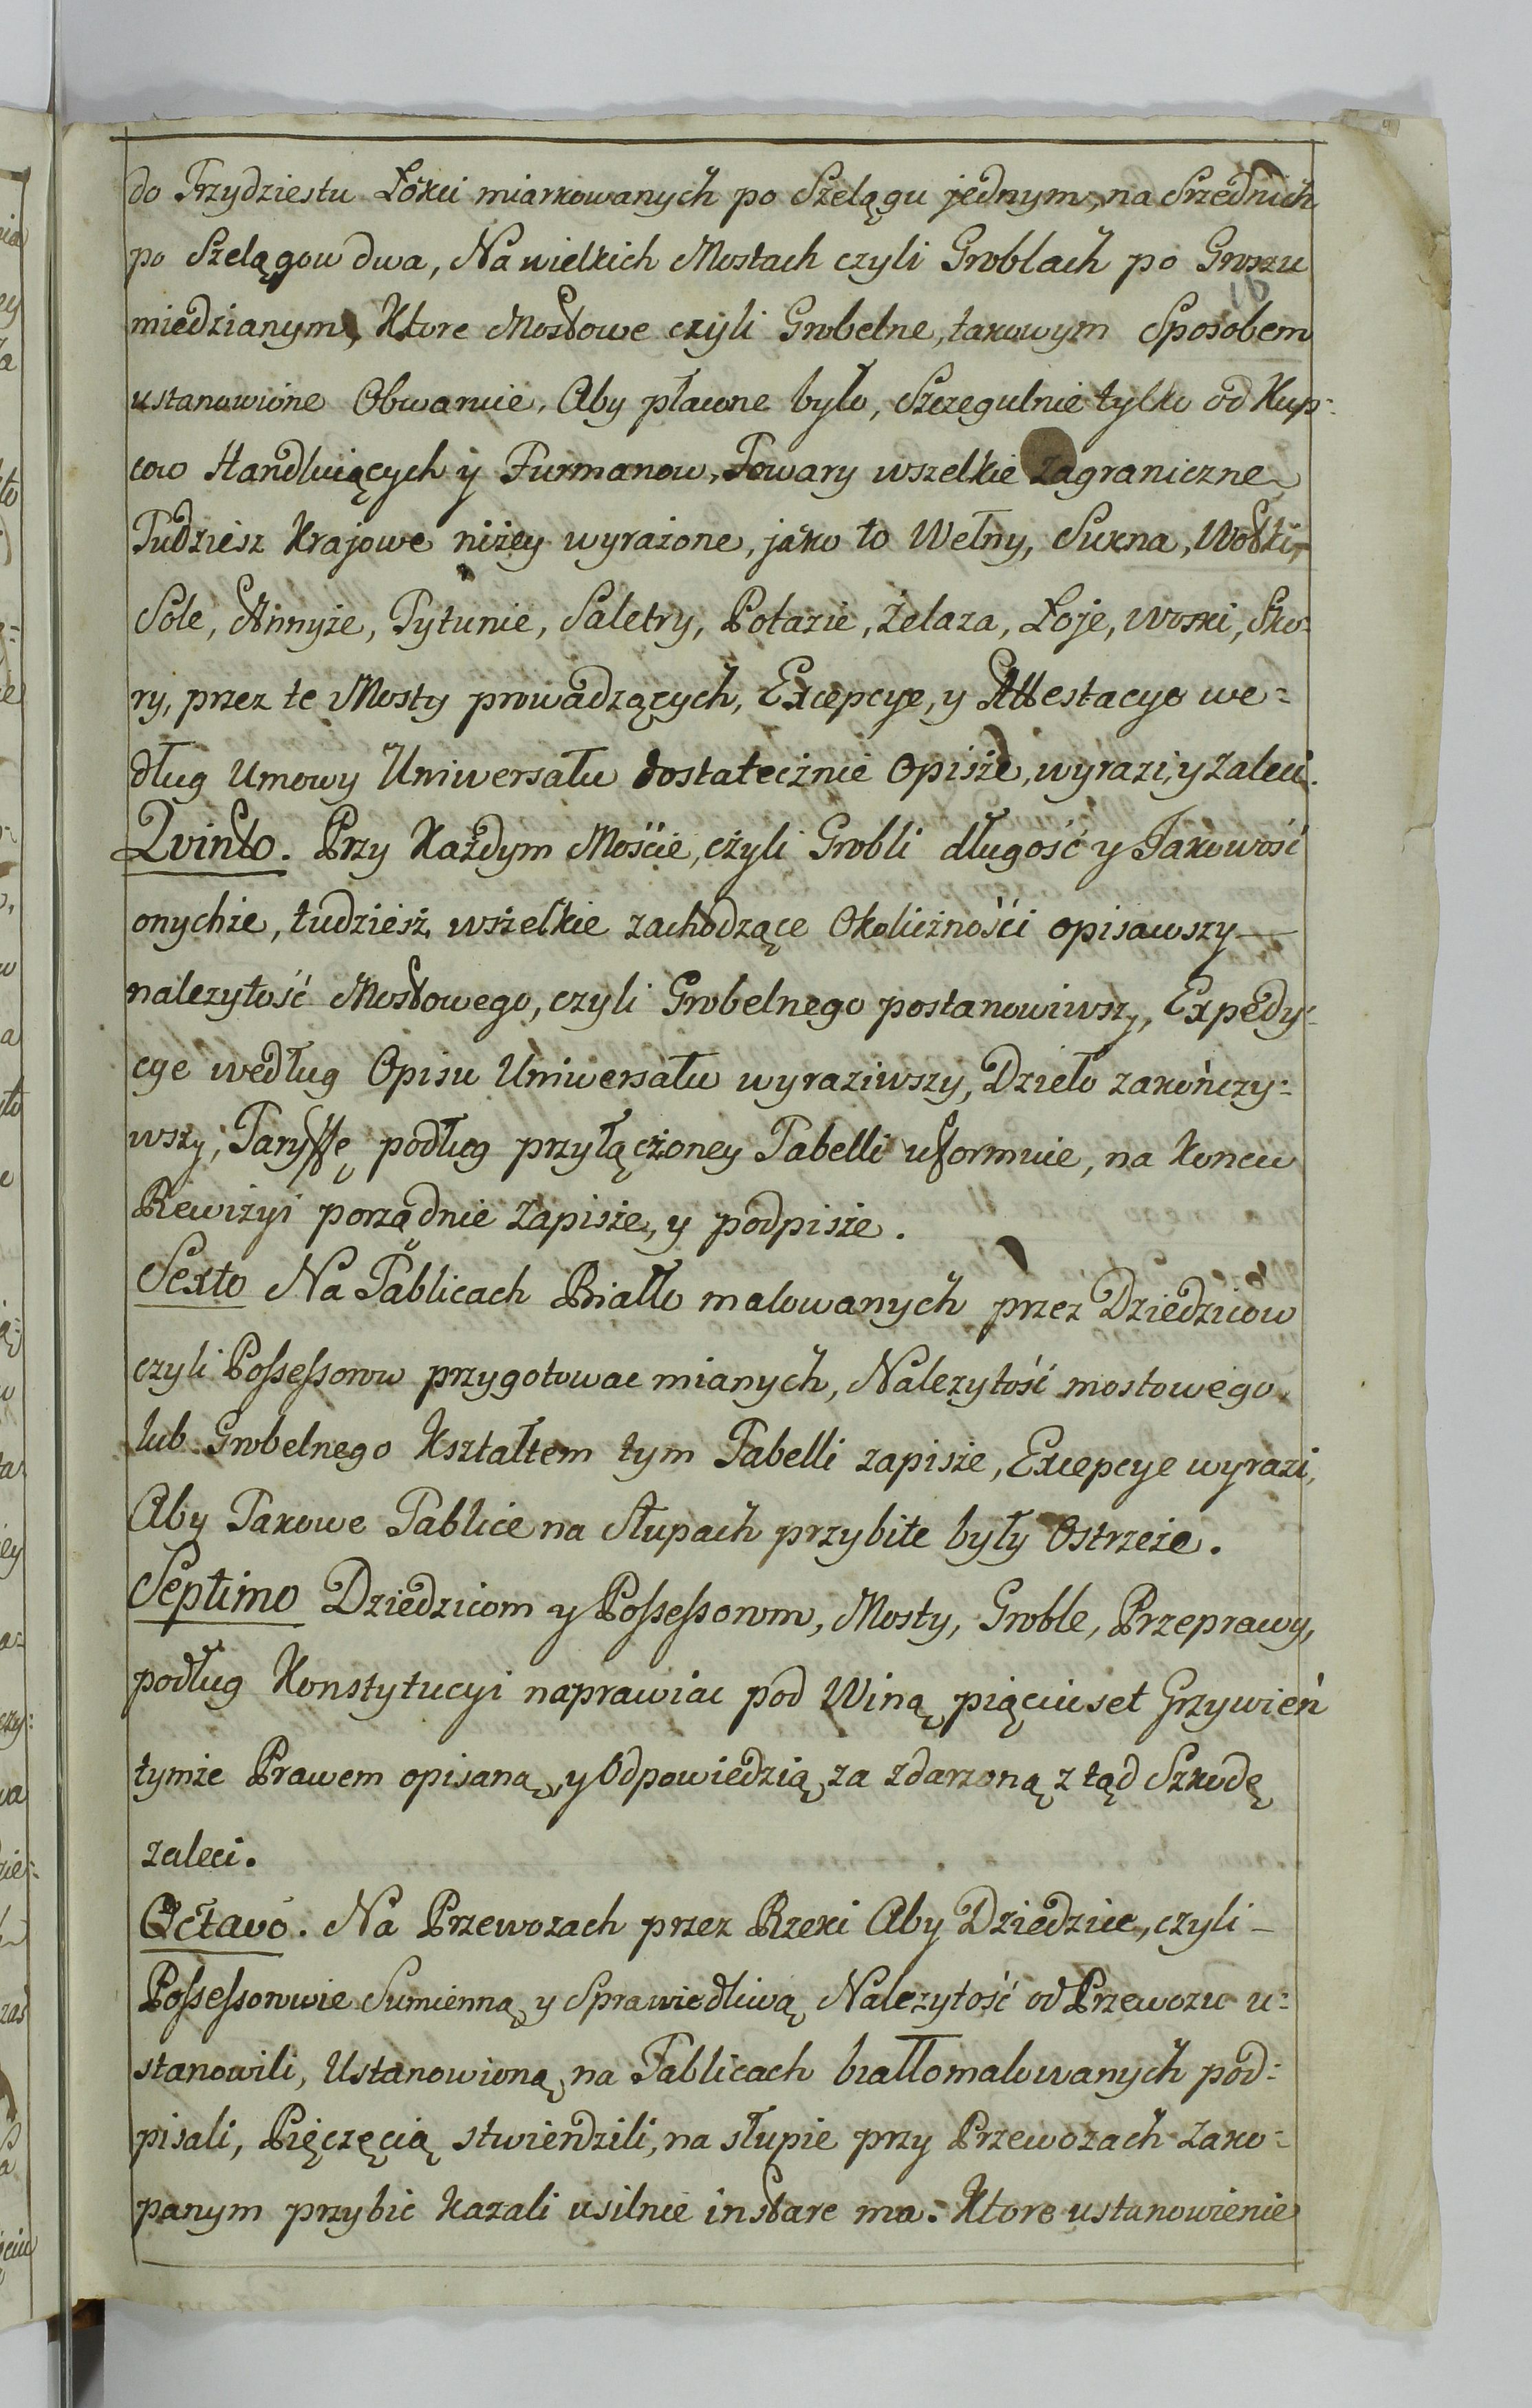 do Trzydziestu Łokci miarkowanych po Szelągu jednym, na Srzednich
po Szelągow dwa, Na wielkich Mostach czyli Groblach po Groszu
miedzianym, Ktore Mostowe czyli Grobelne, takowym Sposobem
ustanowione Obwarnie, Aby pławne było, Szczegulnie tylko od Kup=
cow Handluiących y Furmanow, Towary wszelkie zagraniczne
Tudziesz Krajowe niżey wyrażone, jako to Wełny, Sukna, Wodki,
Sole, Annyże, Tytunie, Saletry, Potazie, Żelaza, Łoje, Woski, Sko=
ry, przez te Mosty prowadzących, Excepcye, y Attestacye we=
dług Umowy Uniwersału dostatecżnie Opisże, wyrazi, y zaleci.
Qvinto. Przy Każdym Mośćie, cżyli Grobli długość y Jakowość
onychże, tudziesż wsżelkie zachodzące Okolicżnośći opisawszy—
nalezytość Mostowego, czyli Grobelnego postanowiwszy, Expedy=
cye według Opisu Uniwersału wyraziwszy, Dzieło zakończy=
wszy, Taryffę podług przyłącżoney Tabelli uformuie, na Koncu
Rewizyi porządnie Zapisże, y podpisże.
Sexto Na Tablicach Biało malowanych przez Dziedzicow
czyli Possessorow przygotowac mianych, Nalezytość mostowego
lub Grobelnego Kształtem tym Tabelli zapisże, Excepcye wyrazi,
Aby Takowe Tablice na Słupach przybite były Ostrzeże.
Septimo Dziedzicom y Possessorom, Mosty, Groble, Przeprawy,
podług Konstytucyi naprawiac pod Winą pięciuset Grzywień
tymże Prawem opisaną, y Odpowiedzią za zdarzoną z tąd Szkodę
zaleci.
Octavo. Na Przewozach przez Rzeki Aby Dziedzice, czyli—
Possessorowie Sumienną y Sprawiedliwą Nalezytość od Przewozu u=
stanowili, Ustanowioną na Tablicach białłomalowanych pod=
pisali, Pięczęcią stwierdzili, na słupie przy Przewozach zako=
panym przybic Kazali usilnie instare ma. Ktore ustanowienie